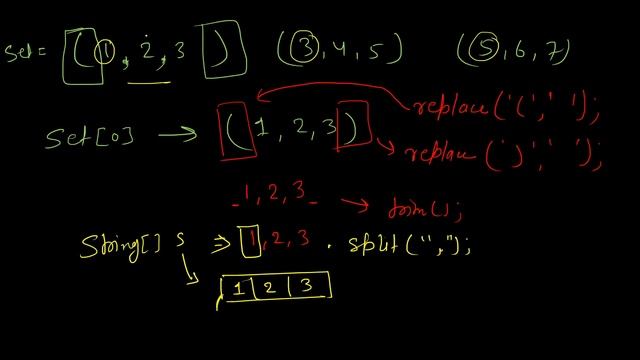 Set = (1, 2, 3) (3, 4, 5) (5, 6, 7)
Set[0] → (1, 2, 3)
replace('(',' ');
replace(')',' ');
_1, 2, 3_ → trim();
String[] s ⇒ 1, 2, 3 . split(",");
1 | 2 | 3